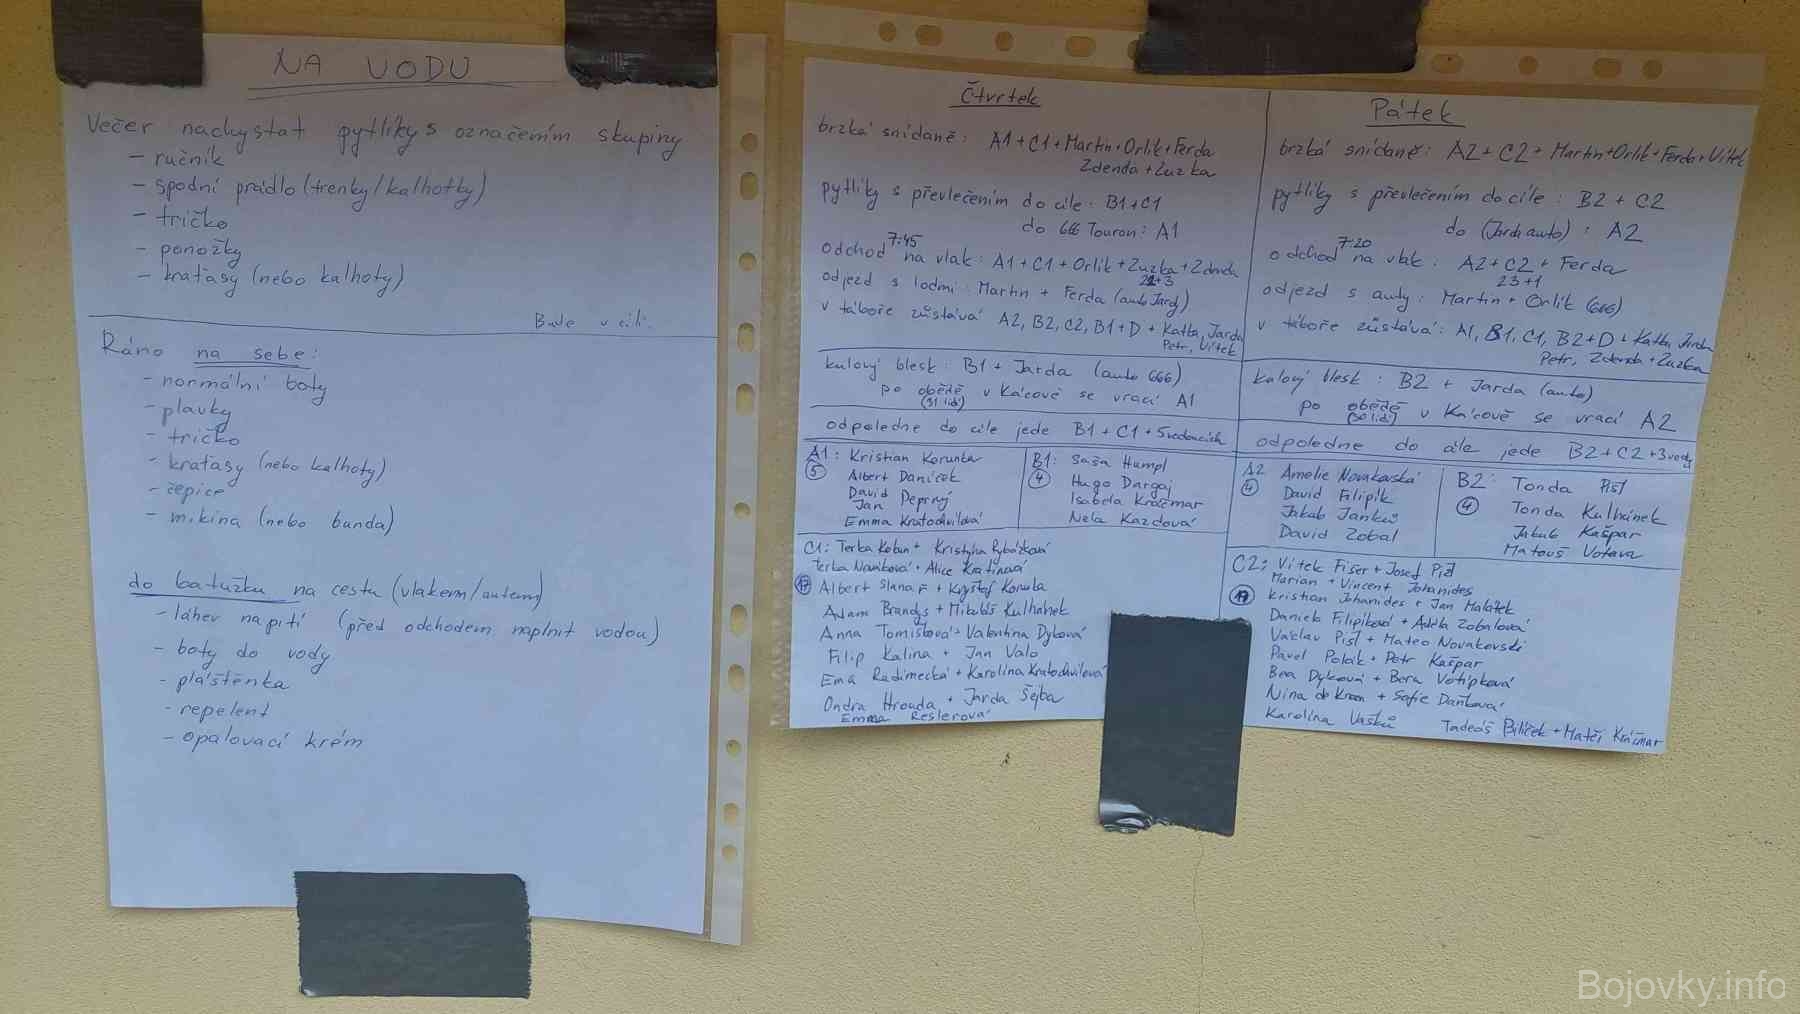 NA VODU
Večer nachystat pytlíky s označením skupiny
- ručník
- spodní prádlo (trenky/kalhotky)
- tričko
- ponožky
- kraťasy (nebo kalhoty)
Bude v cíli.
Ráno na sebe:
- normální boty
- plavky
- tričko
- kraťasy (nebo kalhoty)
- čepice
- mikina (nebo bunda)
do batůžku na cestu (vlakem/autem)
- láhev na pití (před odchodem naplnit vodou)
- boty do vody
- pláštěnka
- repelent
- opalovací krém
Čtvrtek
brzká snídaně: A1 + C1 + Martin + Orlík + Ferda
Zdenda + Zuzka
pytlíky s převlečením do cíle: B1 + C1
do 666 Touran: A1
7:45
odchod na vlak: A1 + C1 + Orlík + Zuzka + Zdenda
odjezd s loďmi: Martin + Ferda (auto Jardy)
v táboře zůstává A2, B2, C2, B1 + D + Katka, Jarda
Petr, Vítek
kulový blesk: B1 + Jarda (auto 666)
po obědě v Kácově se vrací A1
(31 lidí)
odpoledne do cíle jede B1 + C1 + 5 vedoucích
A1: Kristian Korunka
5 Albert Daníček
David Peprný
Jan
Emma Kratochvílová
B1: Saša Humpl
4 Hugo Dargaj
Isabela Kráčmar
Nela Kazdová
C1: Terka Kohun + Kristýna Rybářková
Terka Nováková + Alice Kratinová
17 Albert Slanař + Kryštof Korunka
Adam Brandys + Mikuláš Kulhánek
Anna Tomišková + Valentina Dyková
Filip Kalina + Jan Valo
Ema Radimecká + Karolína Kratochvílová
Ondra Hrouda + Jarda Šejba
Emma Reslerová
Pátek
brzká snídaně: A2 + C2 + Martin + Orlík + Ferda + Vítek
pytlíky s převlečením do cíle: B2 + C2
do (Jarda auto): A2
7:20
odchod na vlak: A2 + C2 + Ferda
23+1
odjezd s auty: Martin + Orlík (666)
v táboře zůstává: A1, B1, C1, B2 + D + Katka, Jarda
Petr, Zdenda + Zuzka
kulový blesk: B2 + Jarda (auto)
po obědě v Kácově se vrací A2
(30 lidí)
odpoledne do cíle jede B2 + C2 + 3 vedy
A2 Amelie Novakovská
4 David Filipík
Jakub Janků
David Zobal
B2: Tonda Pišl
4 Tonda Kulhánek
Jakub Kašpar
Matouš Votava
C2: Vítek Fišer + Josef Pišl
Marian + Vincent Johanides
19 Kristian Johanides + Jan Malášek
Daniela Filipíková + Adéla Zobalová
Václav Pišl + Mateo Novakovski
Pavel Polák + Petr Kašpar
Bea Dyková + Bera Votípková
Nina de Kroon + Sofie Daňková
Karolína Vašků Tadeáš Bilíček + Matěj Kráčmar
Bojovky.info